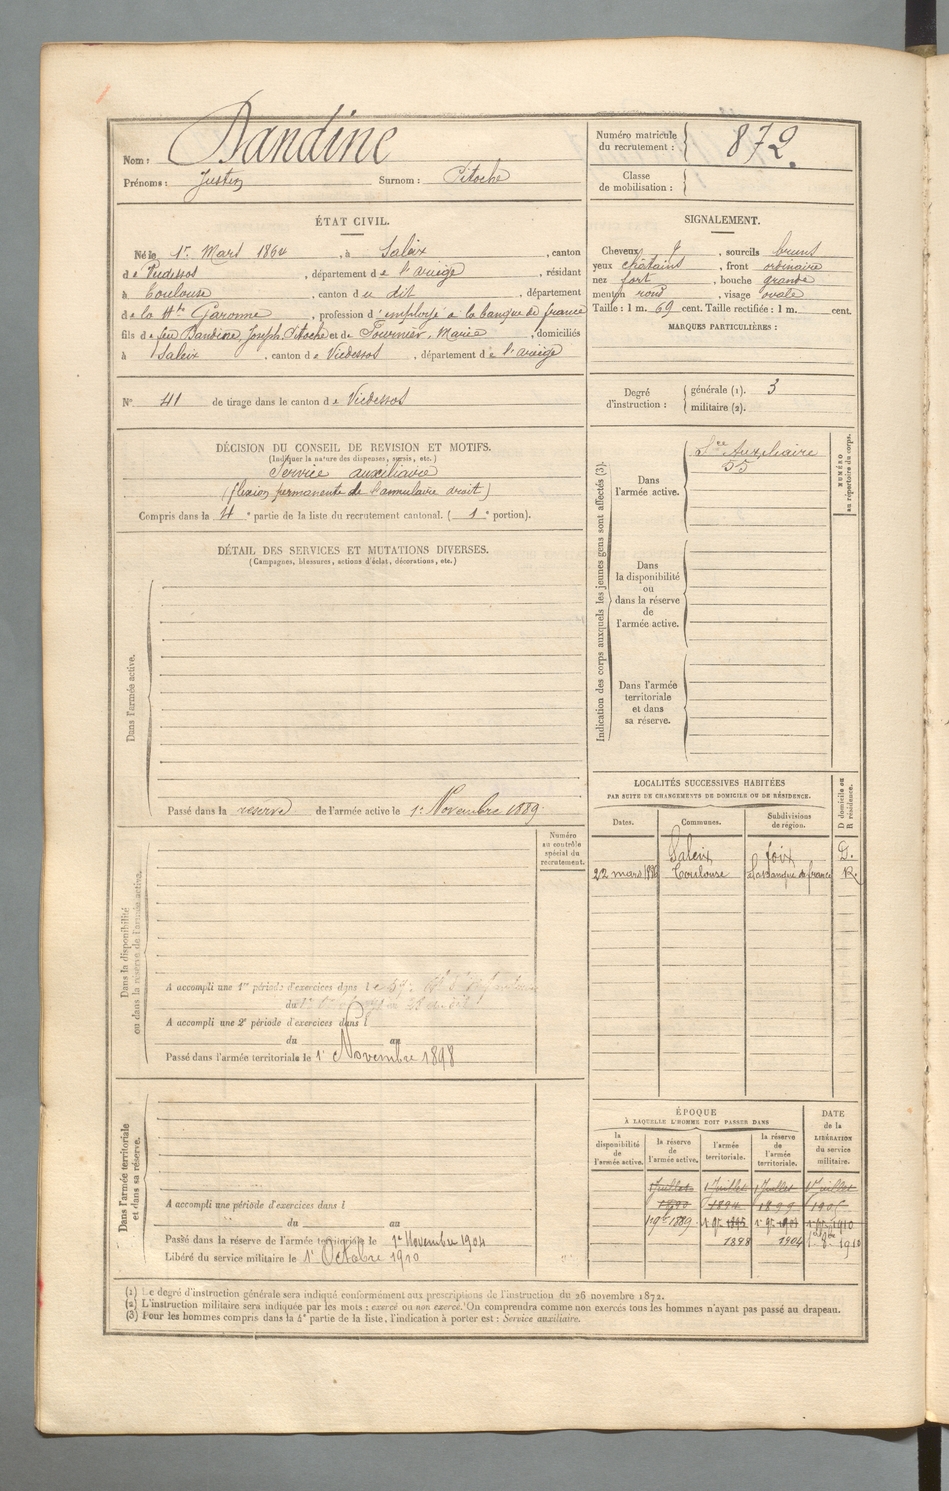 Nom : Dandine
Prénoms : Justin Surnom : Pitoche
Numéro matricule du recrutement : 872.
Classe de mobilisation :
ÉTAT CIVIL.
Né le 1er Mars 1864, à Saleix, canton
de Vicdessos, département de l'ariège, résidant
à Toulouse, canton du dit, département
de la Hte Garonne, profession d'employé à la banque de france
fils de feu Dandine, Joseph, Pitoche et de Fournier, Marie, domiciliés
à Saleix, canton de Vicdessos, département de l'ariège
SIGNALEMENT.
Cheveux, sourcils bruns
yeux châtains, front ordinaire
nez fort, bouche grande
menton rond, visage ovale
Taille : 1 m. 69 cent. Taille rectifiée : 1 m. cent.
MARQUES PARTICULIÈRES :
N° 41 de tirage dans le canton de Vicdessos
Degré d'instruction : générale (1). 3
militaire (2).
DÉCISION DU CONSEIL DE REVISION ET MOTIFS.
(Indiquer la nature des dispenses, sursis, etc.)
Service auxiliaire
(flexion permanente de l'annulaire droit)
Compris dans la 4e partie de la liste du recrutement cantonal. (1e portion).
DÉTAIL DES SERVICES ET MUTATIONS DIVERSES.
(Campagnes, blessures, actions d'éclat, décorations, etc.)
Dans l'armée active.
Passé dans la réserve de l'armée active le 1er Novembre 1889.
Numéro au contrôle spécial du recrutement.
Dans la disponibilité ou dans la réserve de l'armée active.
A accompli une 1re période d'exercices dans le
du
A accompli une 2e période d'exercices dans l
du au
Passé dans l'armée territoriale le 1er Novembre 1898
Dans l'armée territoriale et dans sa réserve.
A accompli une période d'exercices dans l
du au
Passé dans la réserve de l'armée territoriale le 1er Novembre 1904
Libéré du service militaire le 1er Octobre 1910
Indication des corps auxquels les jeunes gens sont affectés (3).
NUMÉRO au répertoire du corps.
Dans l'armée active.
Sce Auxiliaire
55
Dans la disponibilité ou dans la réserve de l'armée active.
Dans l'armée territoriale et dans sa réserve.
LOCALITÉS SUCCESSIVES HABITÉES
PAR SUITE DE CHANGEMENTS DE DOMICILE OU DE RÉSIDENCE.
Dates. Communes. Subdivisions de région. D domicile ou R résidence.
Saleix foix D.
22 mars 1886 Toulouse à la banque de france R.
ÉPOQUE
À LAQUELLE L'HOMME DOIT PASSER DANS
la disponibilité de l'armée active. la réserve de l'armée active. l'armée territoriale. la réserve de l'armée territoriale. DATE de la LIBÉRATION du service militaire.
1 Juillet 1 Juillet 1 Juillet 1er Juillet
1890 1894 1899
1 9bre 1889
1898 1904 1910
(1) Le degré d'instruction générale sera indiqué conformément aux prescriptions de l'instruction du 26 novembre 1872.
(2) L'instruction militaire sera indiquée par les mots : exercé ou non exercé. On comprendra comme non exercés tous les hommes n'ayant pas passé au drapeau.
(3) Pour les hommes compris dans la 4e partie de la liste, l'indication à porter est : Service auxiliaire.